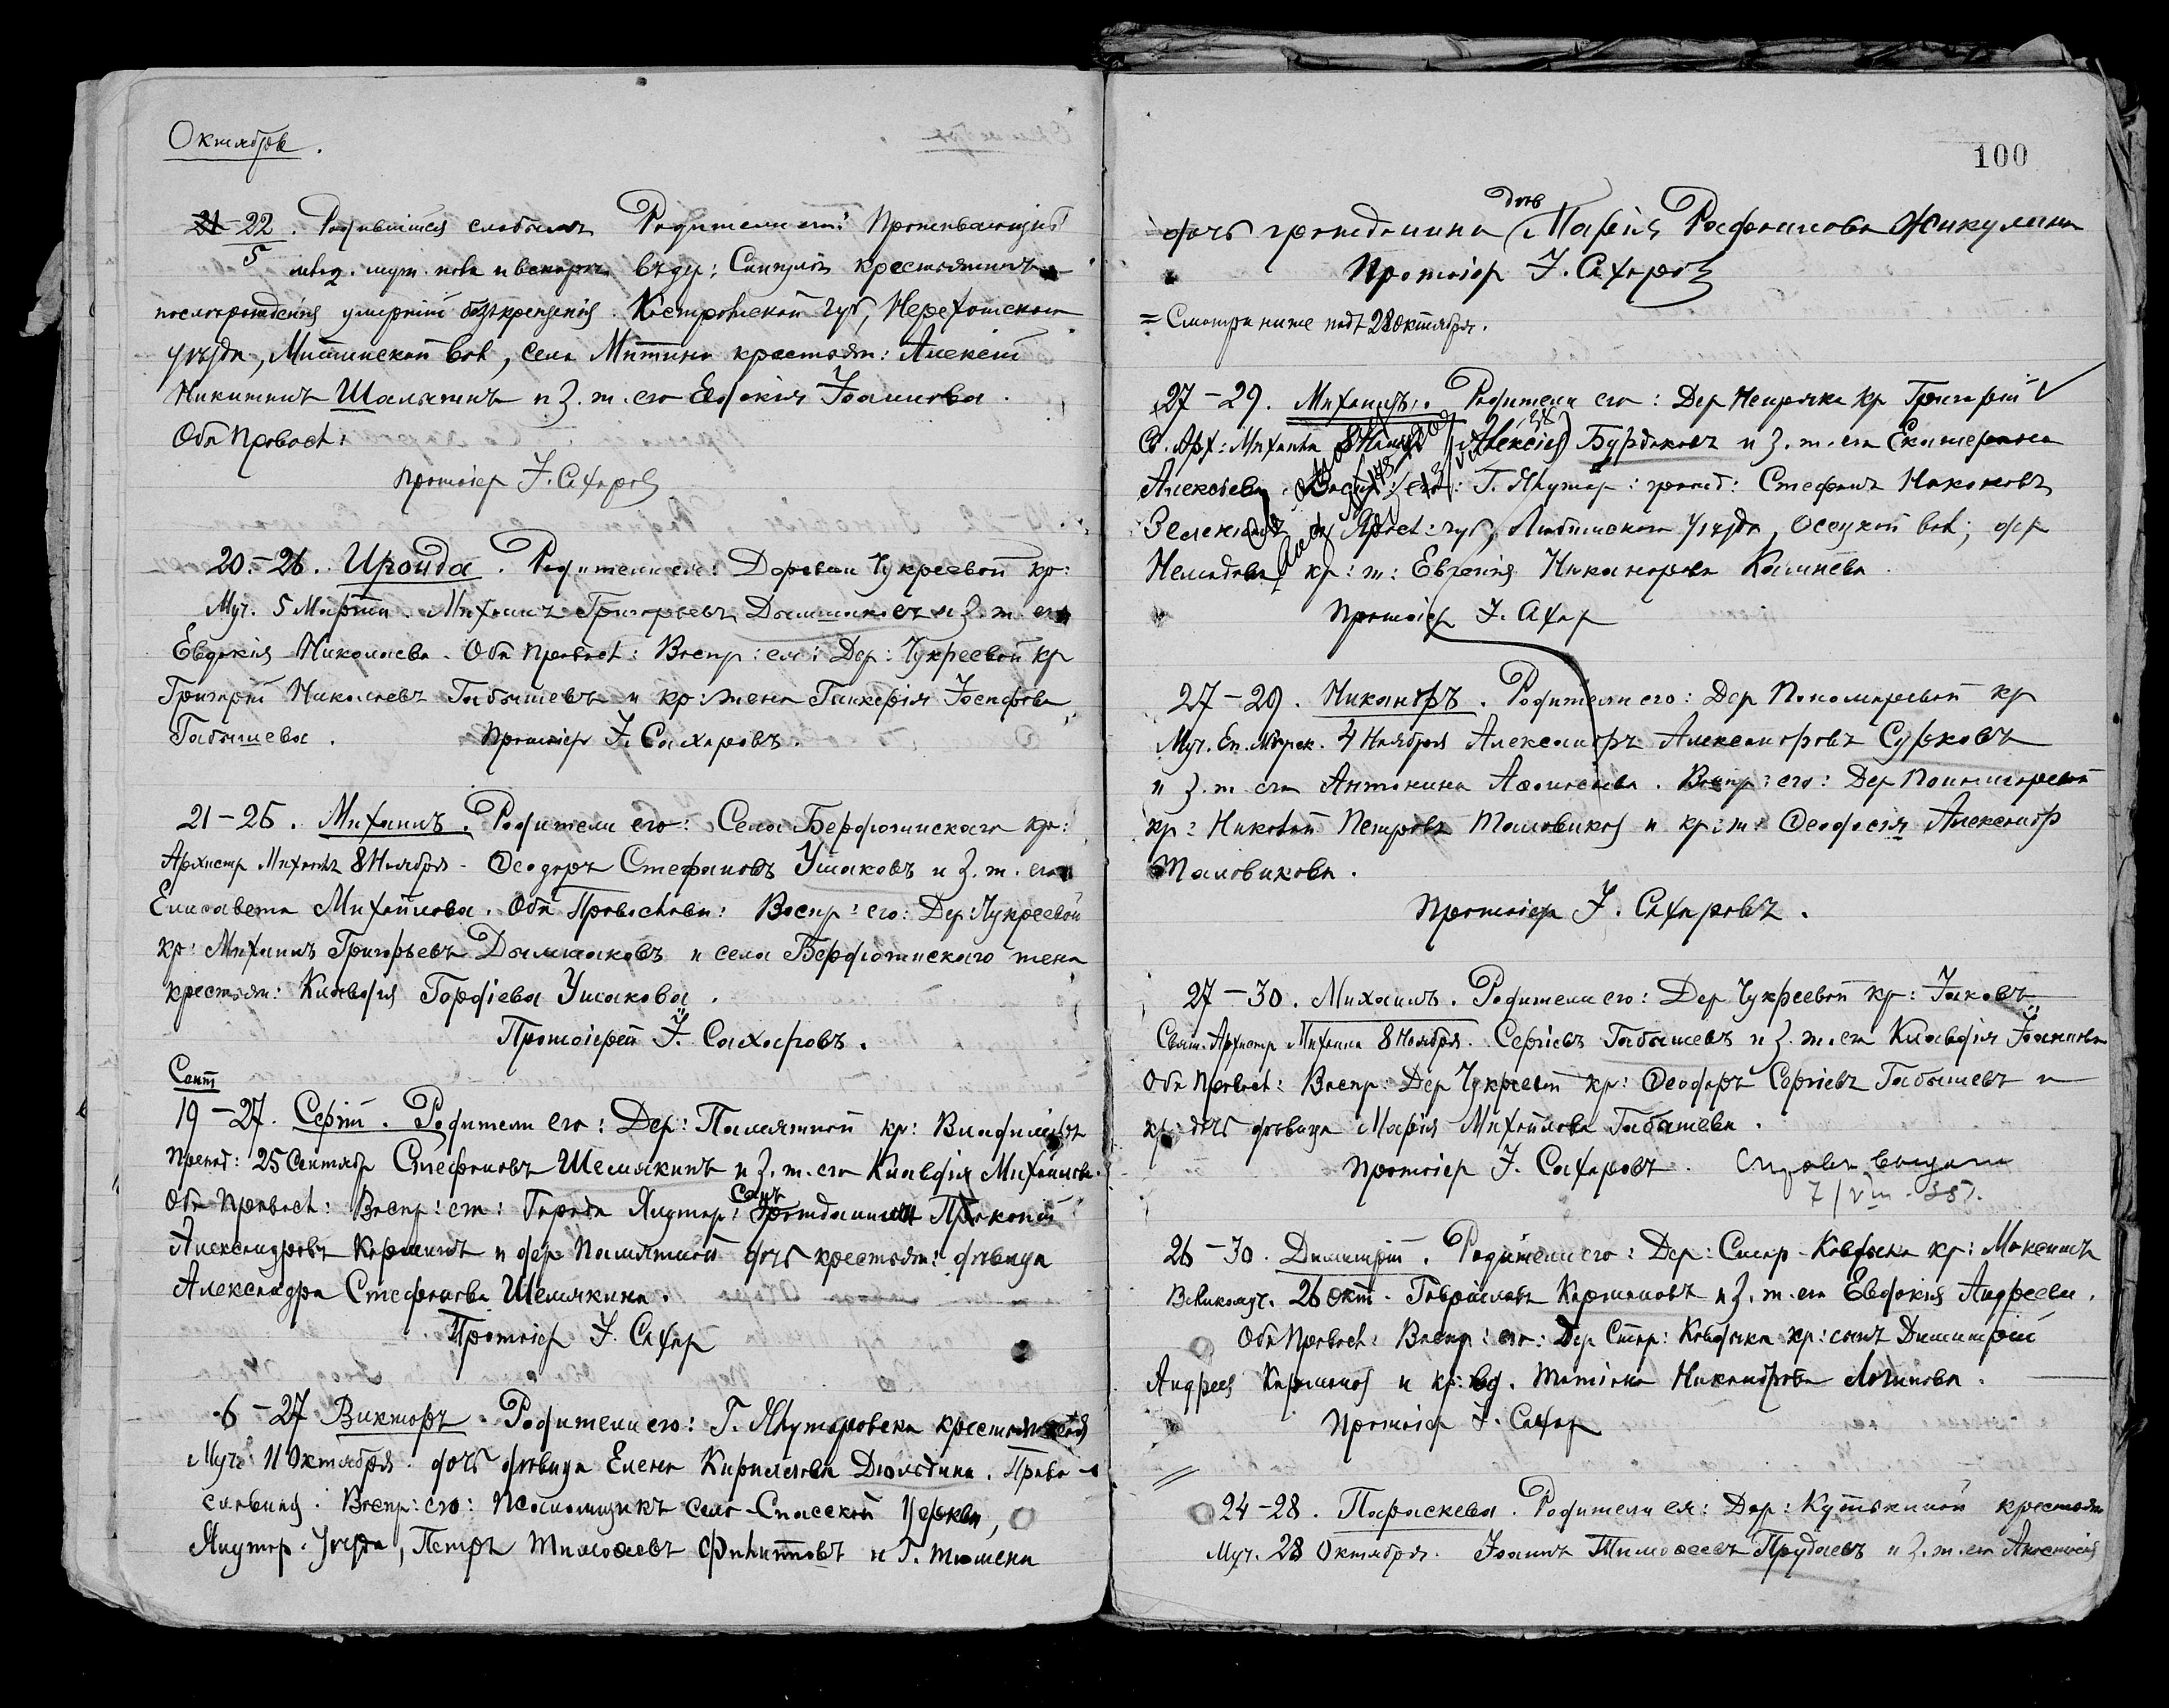 Октябрь.
21-22. Родившійся слабымъ Родители его: Проживающій
5 мѣс. муж. пола и вскорѣ въ дер: Сингуль крестьянинъ
послѣ рожденія умершій безъ крещенія. Костромской губ, Нерехотскаго
уѣзда, Митинской вол, села Митина крестьян: Алексій
Никитинъ Шалыгинъ и з. ж. его Евдокія Іоаннова.
Оба Правосл:
Протоіер І. Сахаровъ
20-26. Ираида. Родители ея: Деревни Чукреевой кр:
Муч. 5 Марта. Михаилъ Григорьевъ Дымшаковъ и з. ж. его
Евдокія Николаева. Оба Правосл: Воспр: ея: Дер: Чукреевой кр
Григорій Николаевъ Габышевъ и кр: жена Гликерія Іосифова
Габышева. Протоіер І. Сахаровъ.
21-25. Михаилъ. Родители его: Села Бердюгинскаго кр:
Архистр Михаила 8 Ноября - Ѳеодоръ Стефановъ Ушаковъ и з. ж. его
Елисавета Михайлова. Оба Православн: Воспр: его: Дер: Чукреевой
кр: Михаилъ Григорьевъ Дымшаковъ и села Бердюгинскаго жена
крестьян: Клавдія Гордіева Ушакова.
Протоіерей І. Сахаровъ.
Сент
19-27. Сергій. Родители его: Дер: Памятной кр: Владиміръ
Препод: 25 Сентябр Стефановъ Шемякинъ и з. ж. его Клавдія Михайлова.
Оба Правосл: Воспр: его: Города Ялутор: сынъ гражданина Прокопій
Александровъ Коркинъ и дер Памятной дочь крестьян: дѣвица
Александра Стефанова Шемякина.
Протоіер І. Сахар
6-27 Викторъ. Родители его: Г. Ялуторовска крестьянская
Муч: 11 Октября. дочь дѣвица Елена Кириллова Дюльдина. Право-
славная. Воспр: его: Псаломщикъ село-Спасской Церкви,
Ялутор. Уѣзда, Петръ Тимоѳеевъ Филипповъ и Г. Тюмени
100
дочь гражданина дѣв Марія Рафаилова Жикулина
Протоіер І. Сахаровъ
= Смотри ниже подъ 28 октября.
27-29. Михаилъ. Родители его: Дер Непряка кр Григорій
Св. Арх: Михаила 8 Ноября (Алексіевъ) Бурдаковъ и з. ж. его Екатерина
Алексіева. Воспр: его: Г. Ялутор: гражд: Стефанъ Никоновъ
Зеленинъ и Яросл: губ, Любимскаго Уѣзда, Осецкой вол, дер
кр: ж: Евгенія Никанорова Калинева.
Протоіер І. Сахар
27-29. Никандръ. Родители его: Дер Пономаревой кр
Муч. Еп. Мирск. 4 Ноября Александръ Александровъ Сурковъ
и з. ж. его Антонина Аѳанасьева. Воспр: его: Дер Пономаревой
кр: Николай Петровъ Таловиковъ и кр: ж: Ѳеодосія Александр
Таловикова.
Протоіер І. Сахаровъ.
27-30. Михаилъ. Родители его: Дер Чукреевой кр: Іаковъ
Свят. Архистр Михаила 8 Ноября. Сергіевъ Габышевъ и з. ж. его Клавдія Іоаннова
Оба Правосл: Воспр: Дер Чукреевой кр: Ѳеодоръ Сергіевъ Габышевъ и
кр: дочь дѣвица Марія Михайлова Габышева.
Протоіер І. Сахаровъ. Справка выдана
7/VIII-35г.
26-30. Димитрій. Родители его: Дер: Стар-Кавдыка кр: Максимъ
Великомуч. 26 Окт. Гавріиловъ Кармановъ и з. ж. его Евдокія Андреева.
Оба Правосл: Воспр: его: Дер Стар: Кавдыка кр: сынъ Димитрій
Андреевъ Кармановъ и кр: вд. Татіана Никандрова Логинова.
Протоіер І. Сахар
24-28. Параскева. Родители ея: Дер: Кутькиной крестьян
Муч. 28 Октября. Іоаннъ Тимоѳеевъ Прудаевъ и з. ж. его Анастасія